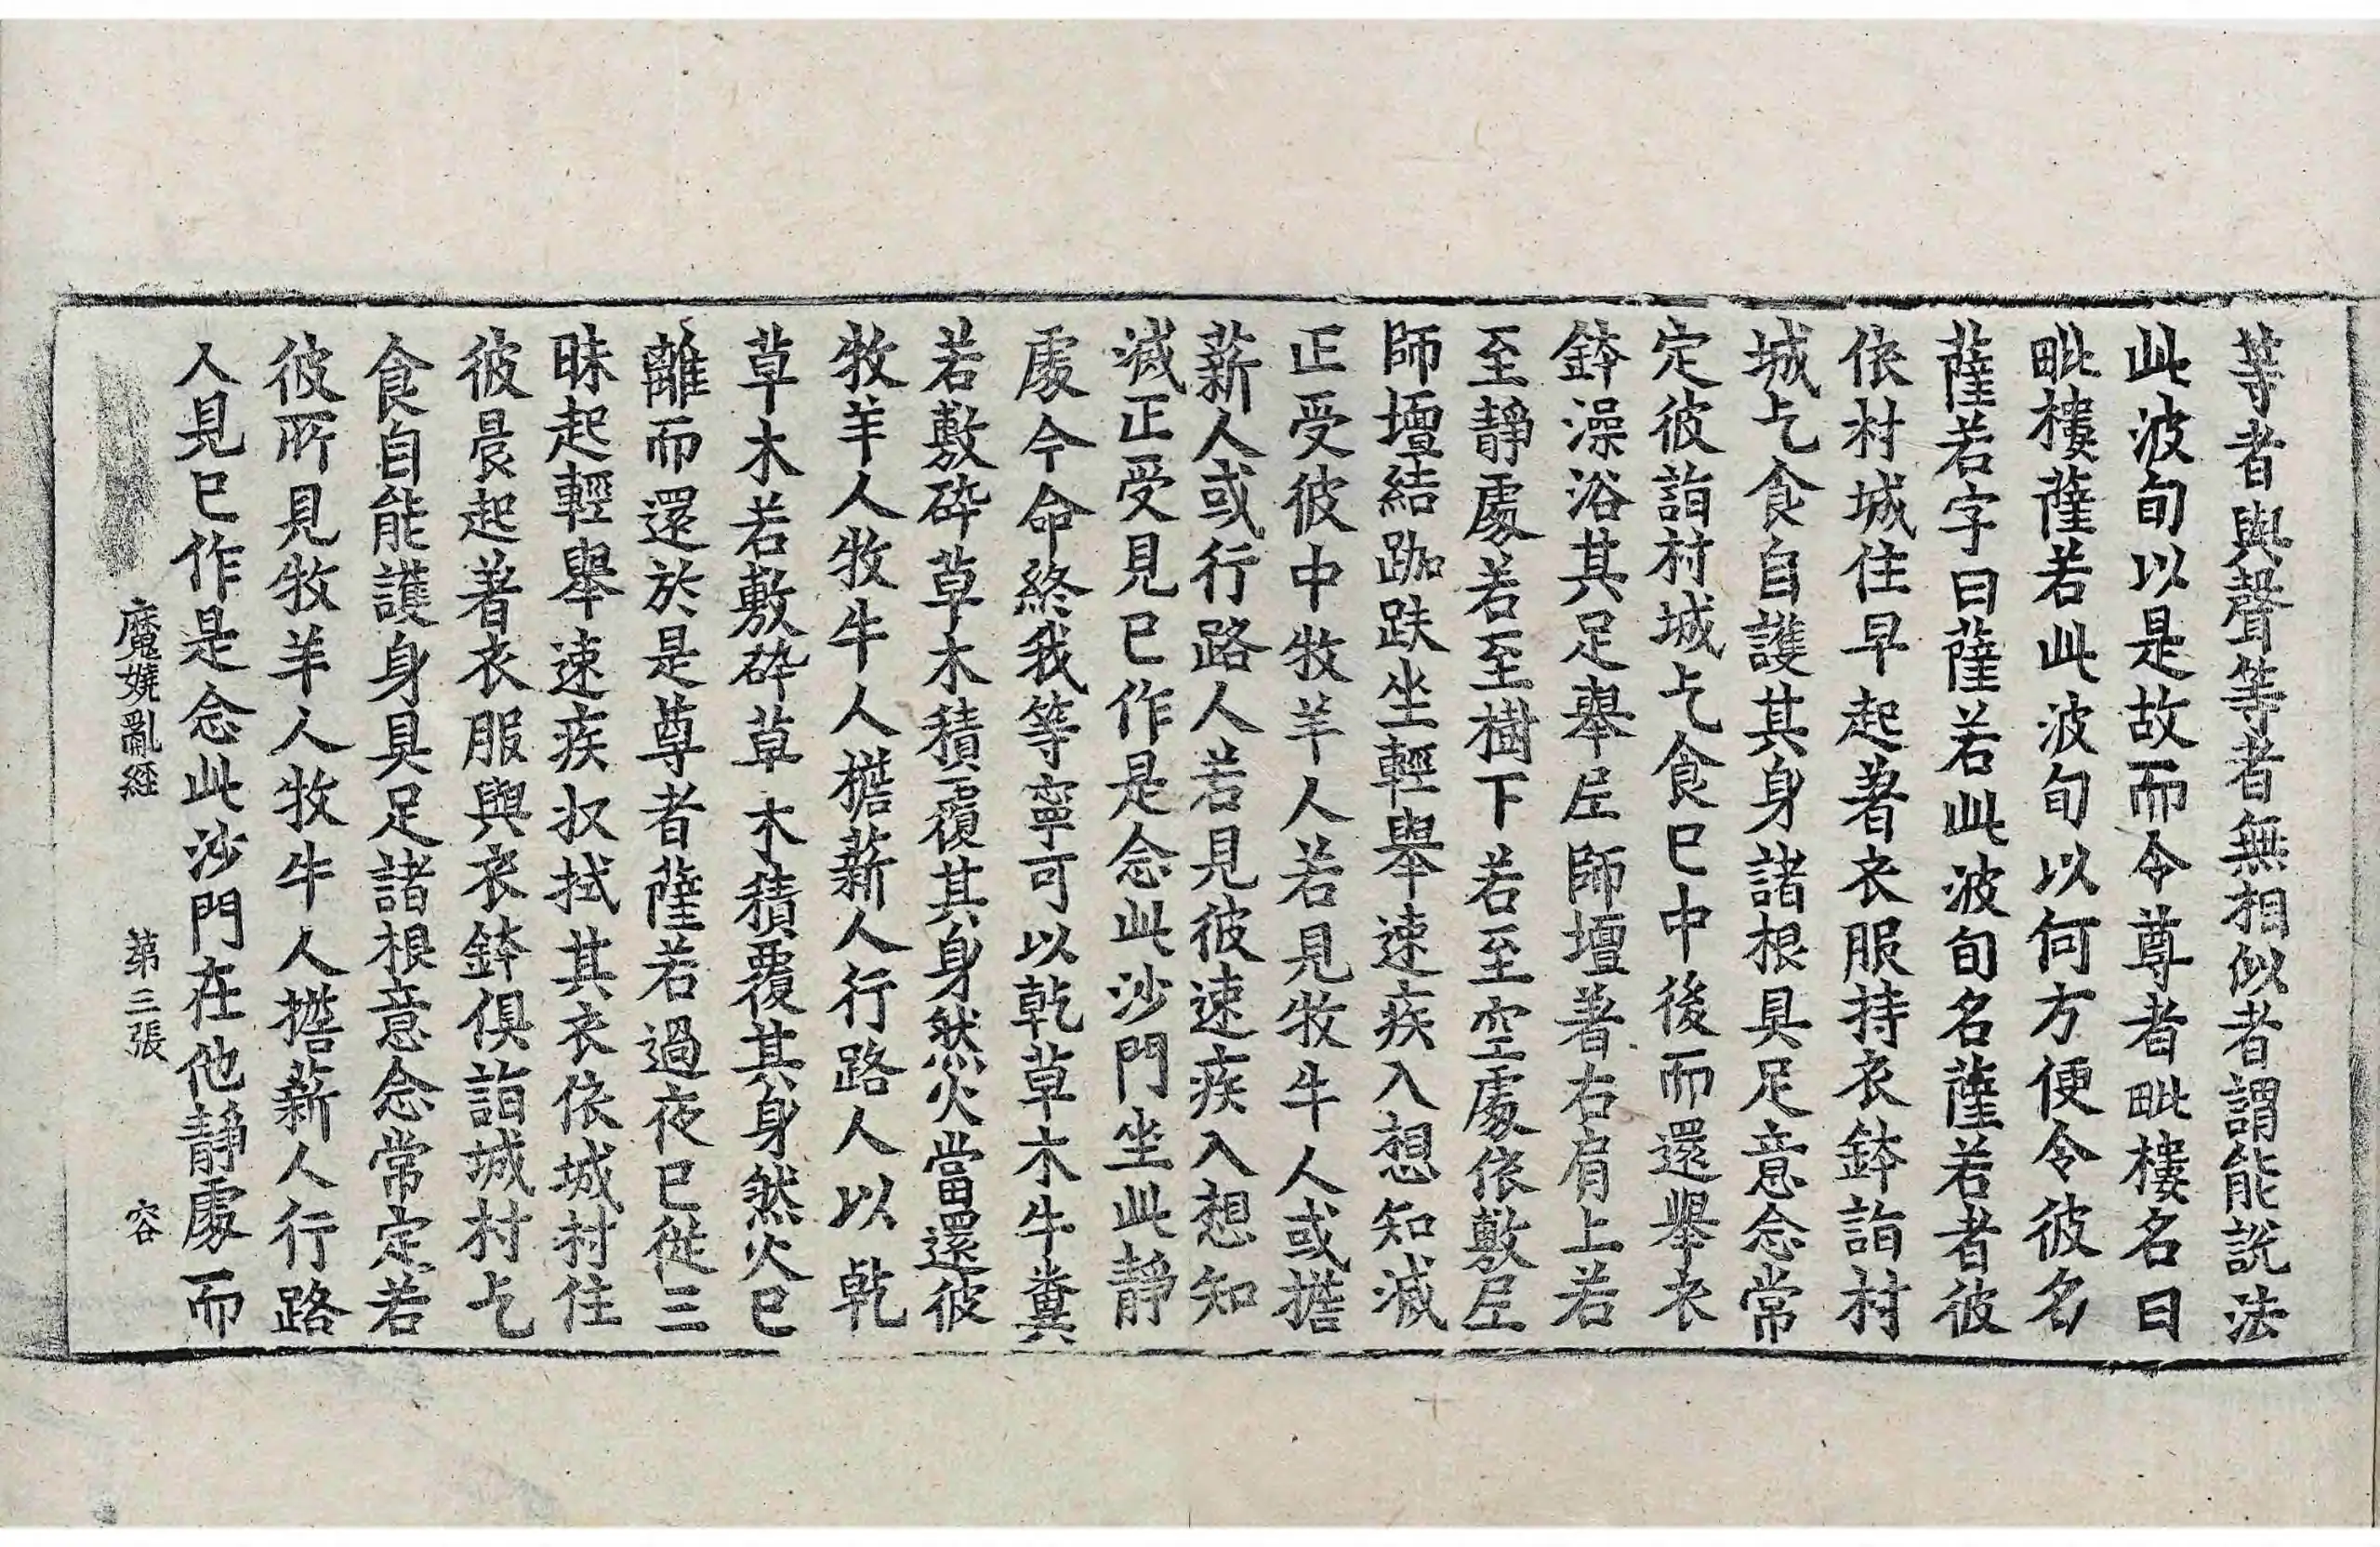 等者與聲等者無相似者謂能說法
此波旬以是故而令尊者毗樓名曰
毗樓薩若此波旬以何方便令彼名
薩若字曰薩若此波旬名薩若者彼
依村城住早起著衣服持衣鉢詣村
城乞食自護其身諸根具足意念常
定彼詣村城乞食已中後而還擧衣
鉢澡浴其足舉𡊄師壇著右肩上若
至靜處若至樹下若至空處依敷𡊄
師壇結跏趺坐輕舉速疾入想知滅
正受彼中牧羊人若見牧牛人或擔
薪人或行路人若見彼速疾入想知
滅正受見已作是念此沙門坐此靜
處今命終我等寧可以乾草木牛糞
若敷碎草木積覆其身然火當還彼
牧羊人牧牛人擔薪人行路人以乾
草木若敷碎草木積覆其身然火已
離而還於是尊者薩若過夜已從三
昧起輕舉速疾抆拭其衣依城村住
彼晨起著衣服與衣鉢俱詣城村乞
食自能護身具足諸根意念常定若
彼所見牧羊人牧牛人擔薪人行路
人見已作是念此沙門在他靜處而
魔嬈亂經 第三張 容